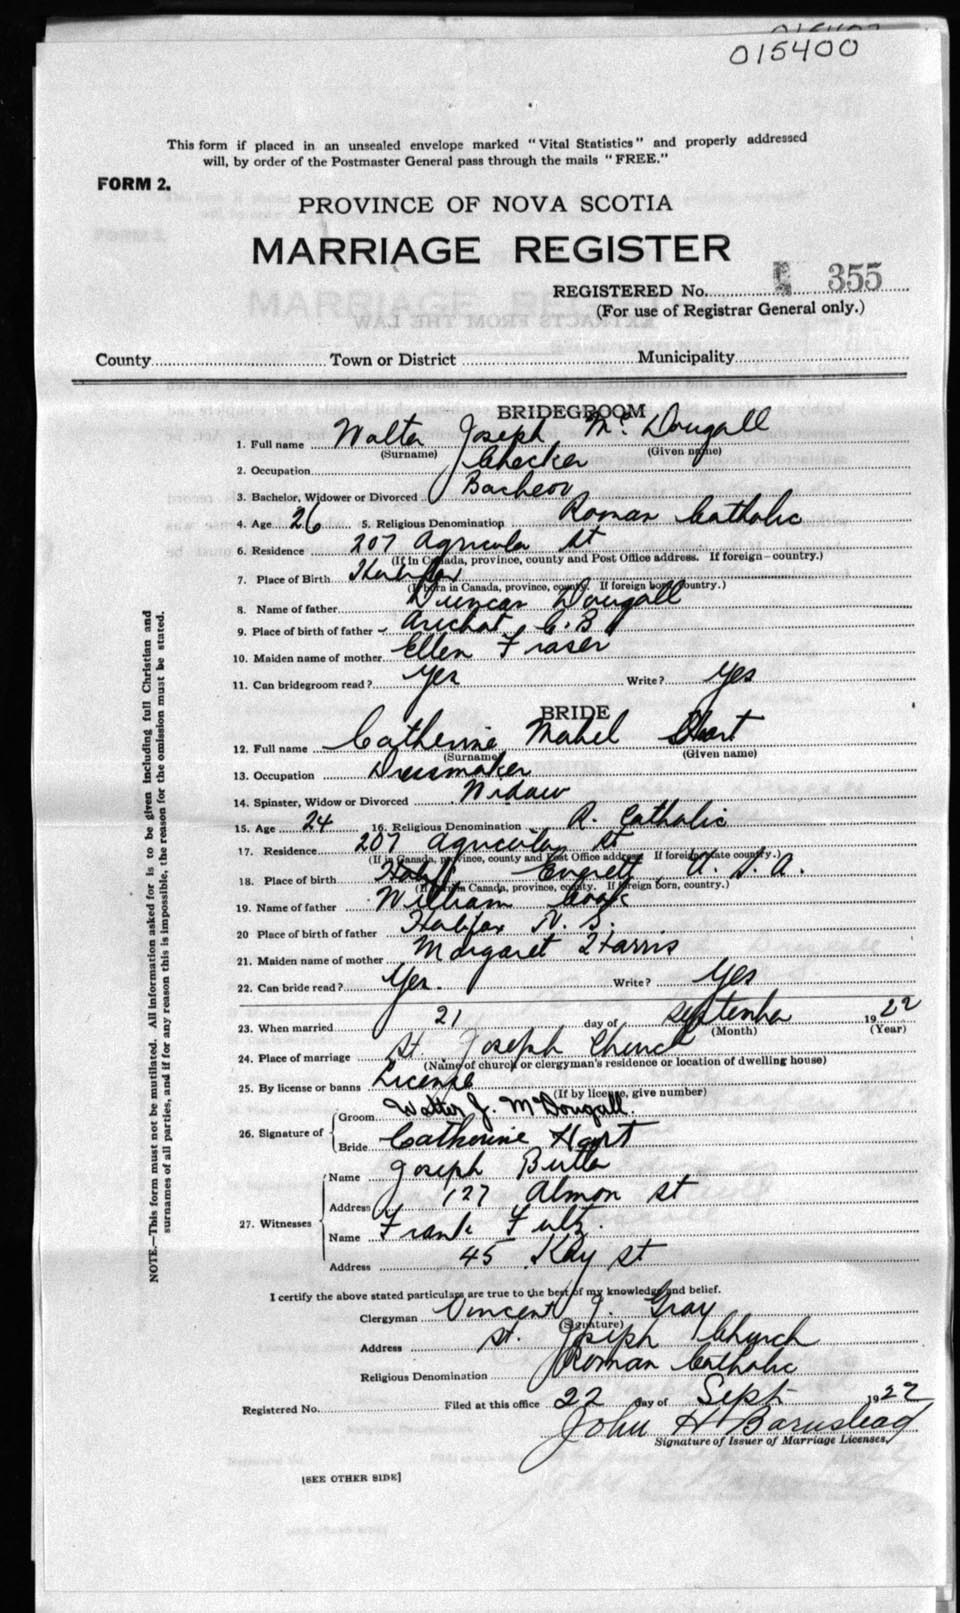 015400
This form if placed in an unsealed envelope marked "Vital Statistics" and properly addressed
will, by order of the Postmaster General pass through the mails "FREE."
FORM 2.
PROVINCE OF NOVA SCOTIA
MARRIAGE REGISTER
REGISTERED No. 355
(For use of Registrar General only.)
County Town or District Municipality
BRIDEGROOM
1. Full name Walter Joseph McDougall
(Surname) (Given name)
2. Occupation Checker
3. Bachelor, Widower or Divorced Bachelor
4. Age 26 5. Religious Denomination Roman Catholic
6. Residence 207 Agricola St
(If in Canada, province, county and Post Office address. If foreign—country.)
7. Place of Birth Halifax
(If born in Canada, province, county. If foreign born, country.)
8. Name of father Duncan Dougall
9. Place of birth of father Arichat C.B
10. Maiden name of mother Ellen Fraser
11. Can bridegroom read? Yes Write? Yes
BRIDE
12. Full name Catherine Mabel Hart
(Surname) (Given name)
13. Occupation Dressmaker
14. Spinster, Widow or Divorced Widow
15. Age 24 16. Religious Denomination R. Catholic
17. Residence 207 Agricola St
(If in Canada, province, county and Post Office address If foreign state country.)
18. Place of birth Everett U.S.A.
(If born in Canada, province, county. If foreign born, country.)
19. Name of father William Cook
20 Place of birth of father Halifax N.S.
21. Maiden name of mother Margaret Harris
22. Can bride read? Yes. Write? Yes
23. When married 21 day of September 1922
(Month) (Year)
24. Place of marriage St. Joseph Church
(Name of church or clergyman's residence or location of dwelling house)
25. By license or banns License
(If by license, give number)
26. Signature of Groom Walter J. McDougall.
Bride Catherine Hart
27. Witnesses Name Joseph Butler
Address 127 Almon St
Name Frank Fultz.
Address 45 Kay St
I certify the above stated particulars are true to the best of my knowledge and belief.
Clergyman Vincent J. Gray
(Signature)
Address St. Joseph Church
Religious Denomination Roman Catholic
Registered No. Filed at this office 22 day of Sept 1922
John H Barnstead
Signature of Issuer of Marriage Licenses.
[SEE OTHER SIDE]
NOTE.—This form must not be mutilated. All information asked for is to be given including full Christian and
surnames of all parties, and if for any reason this is impossible, the reason for the omission must be stated.